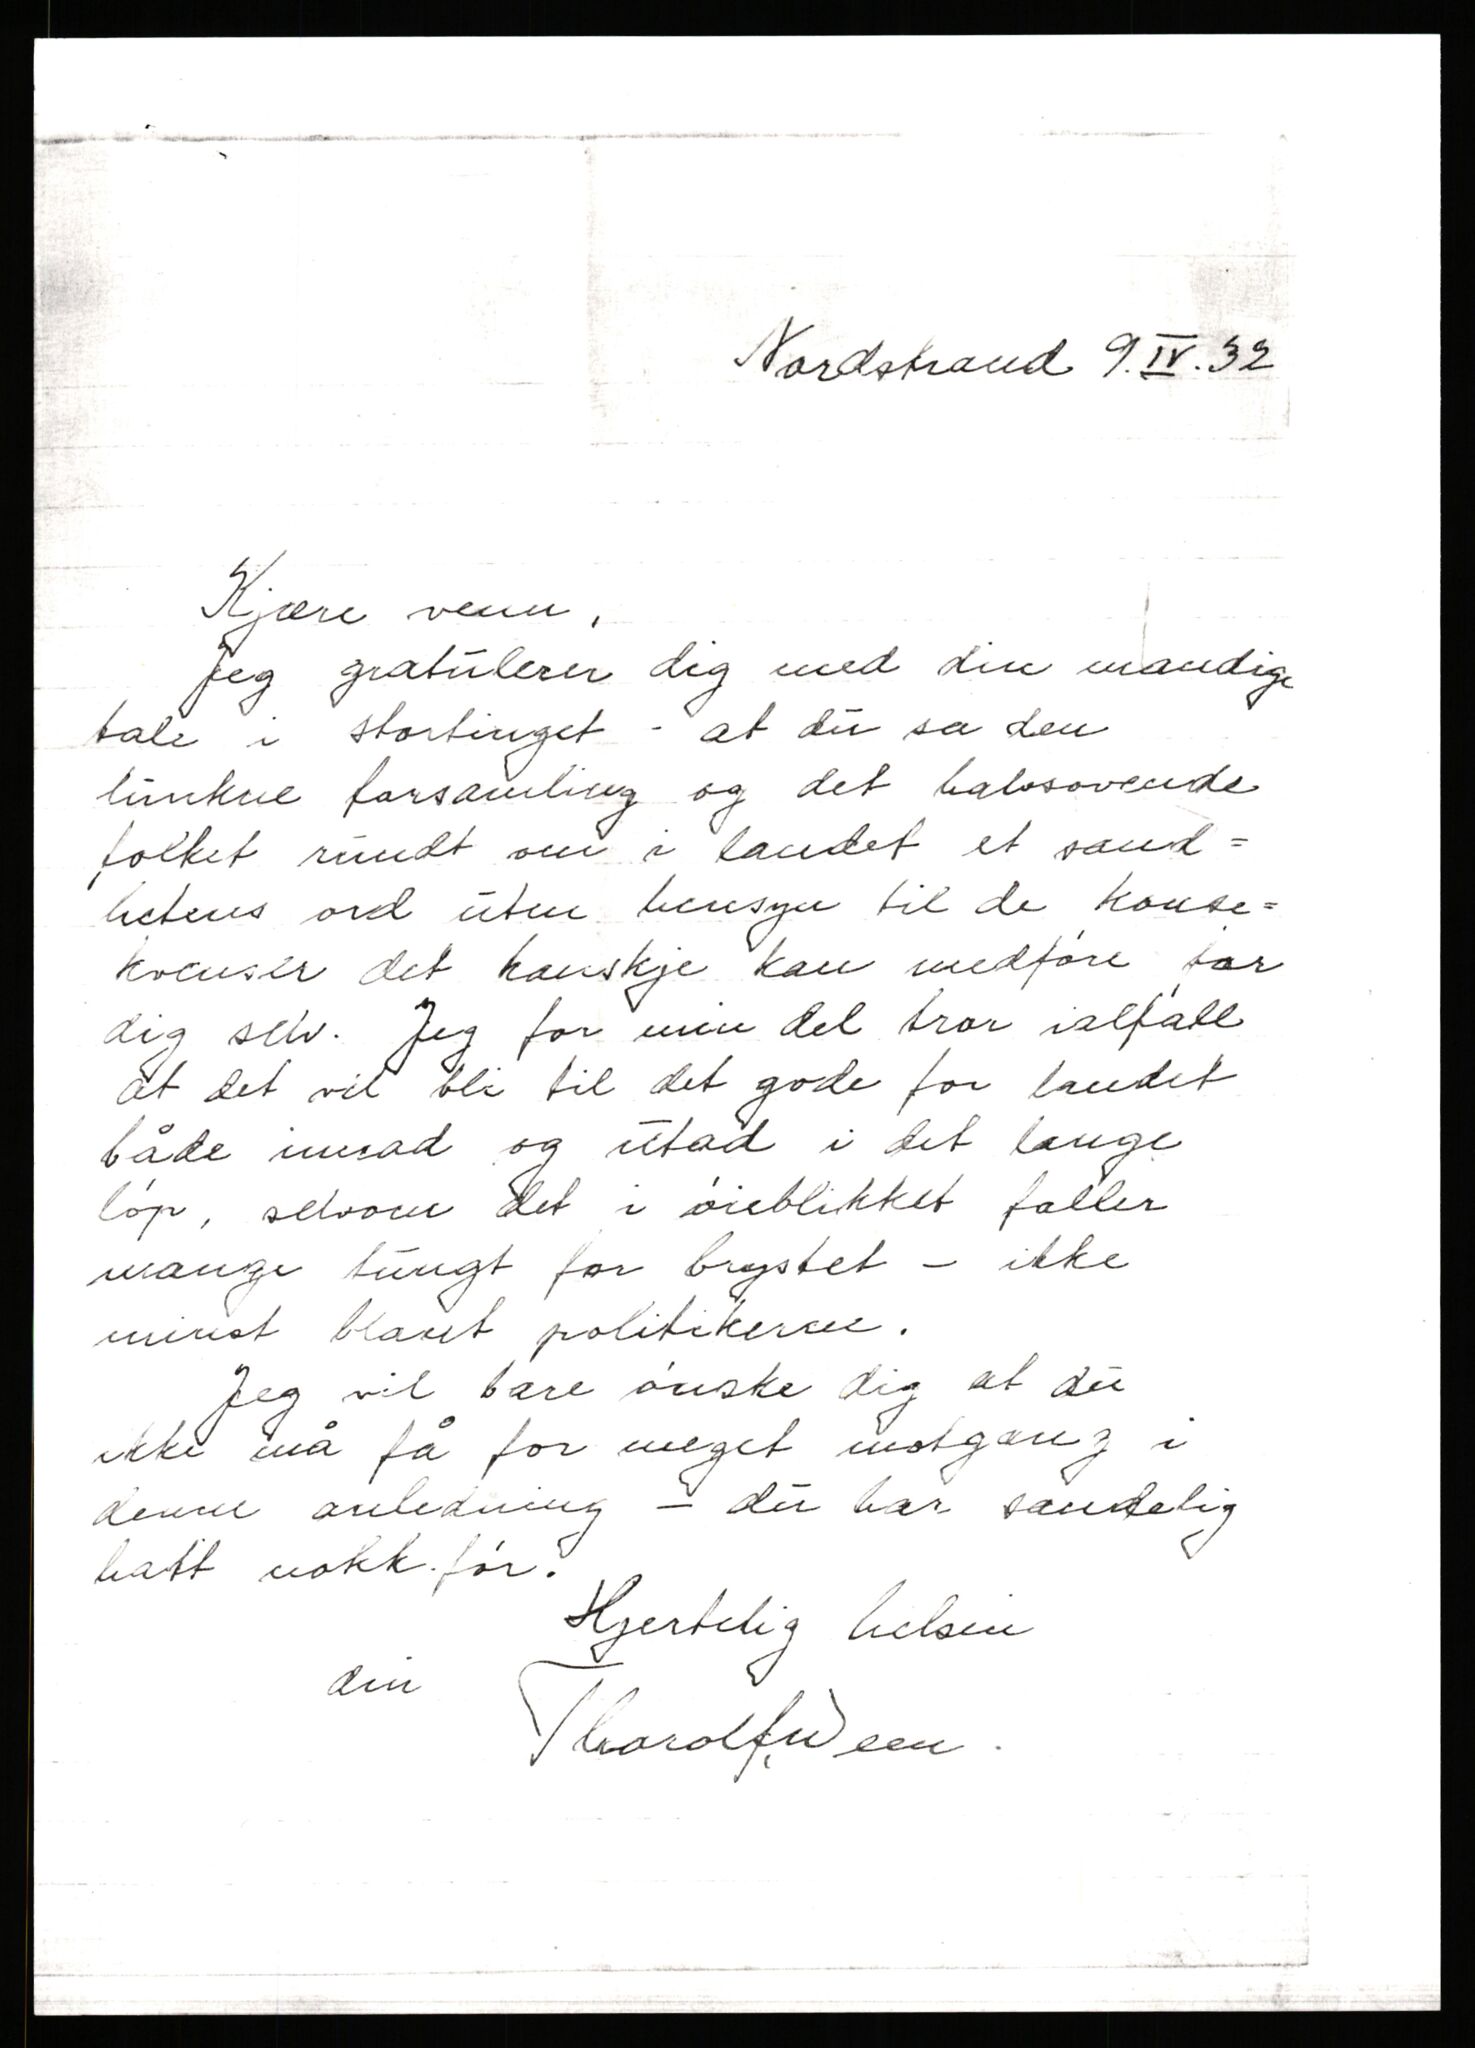 Nordstrand 9.IV.32
Kjære venn,
Jeg gratulerer dig med din mandige
tale i stortinget - at du sa den
lunkne forsamling og det halvsovende
folket rundt om i landet et sand=
hetens ord uten hensyn til de konse=
kvenser det kanskje kan medføre for
dig selv. Jeg for min del tror ialfall
at det vil bli til det gode for landet
både innad og utad i det lange
løp, selvom det i øieblikket faller
mange tungt for brystet - ikke
minst blant politikerne.
Jeg vil bare ønske dig at du
ikke må få for meget motgang i
denne anledning - du har sandelig
hatt nokk før.
Hjertelig helsin
din
Thorolf